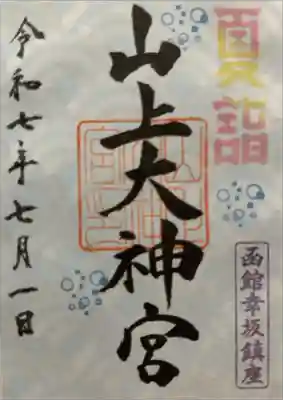 夏詣
山上大神宮
函館幸坂鎮座
令和七年七月一日